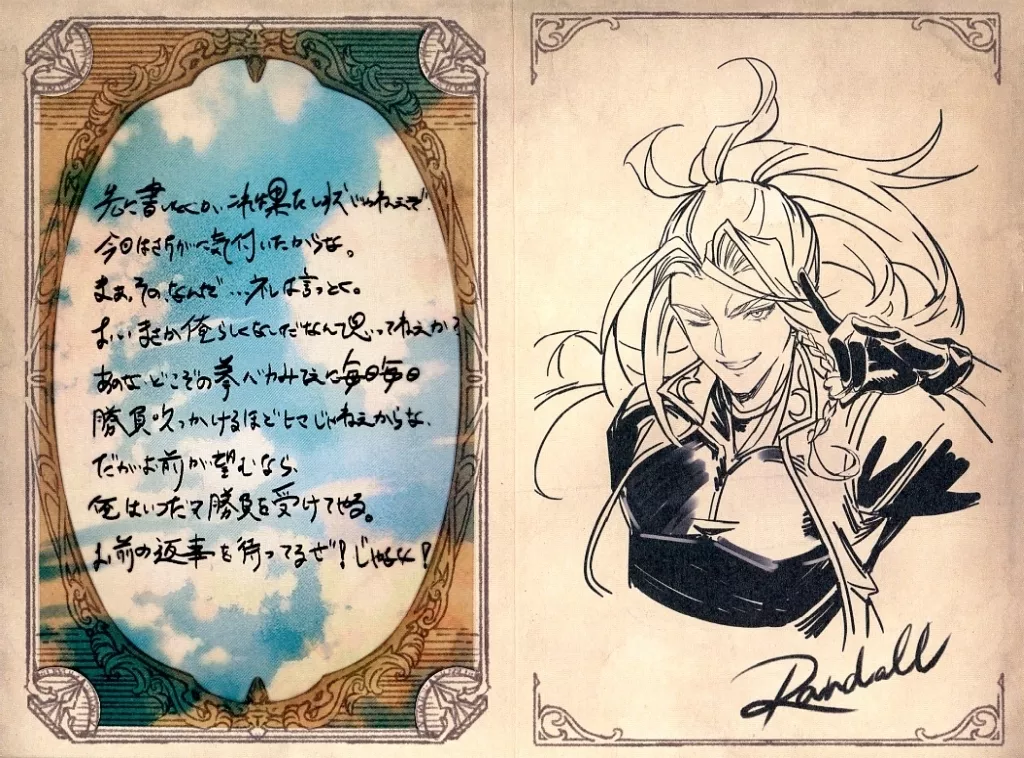 先に書いとくが、これ果たし状じゃねえぞ。
今回はさすがに気付いたからな。
まぁ、その、なんだ…ネレは言っとく。
おいまさか俺らしくなしだなんて思ってねえか?
あのな、どこぞの拳バカみてえに毎日毎日
勝負吹っかけるほどヒマじゃねえからな、
だがお前が望むなら、
俺はいつだって勝負を受けてやる。
お前の返事を待ってるぜ!じゃあな!
Randall